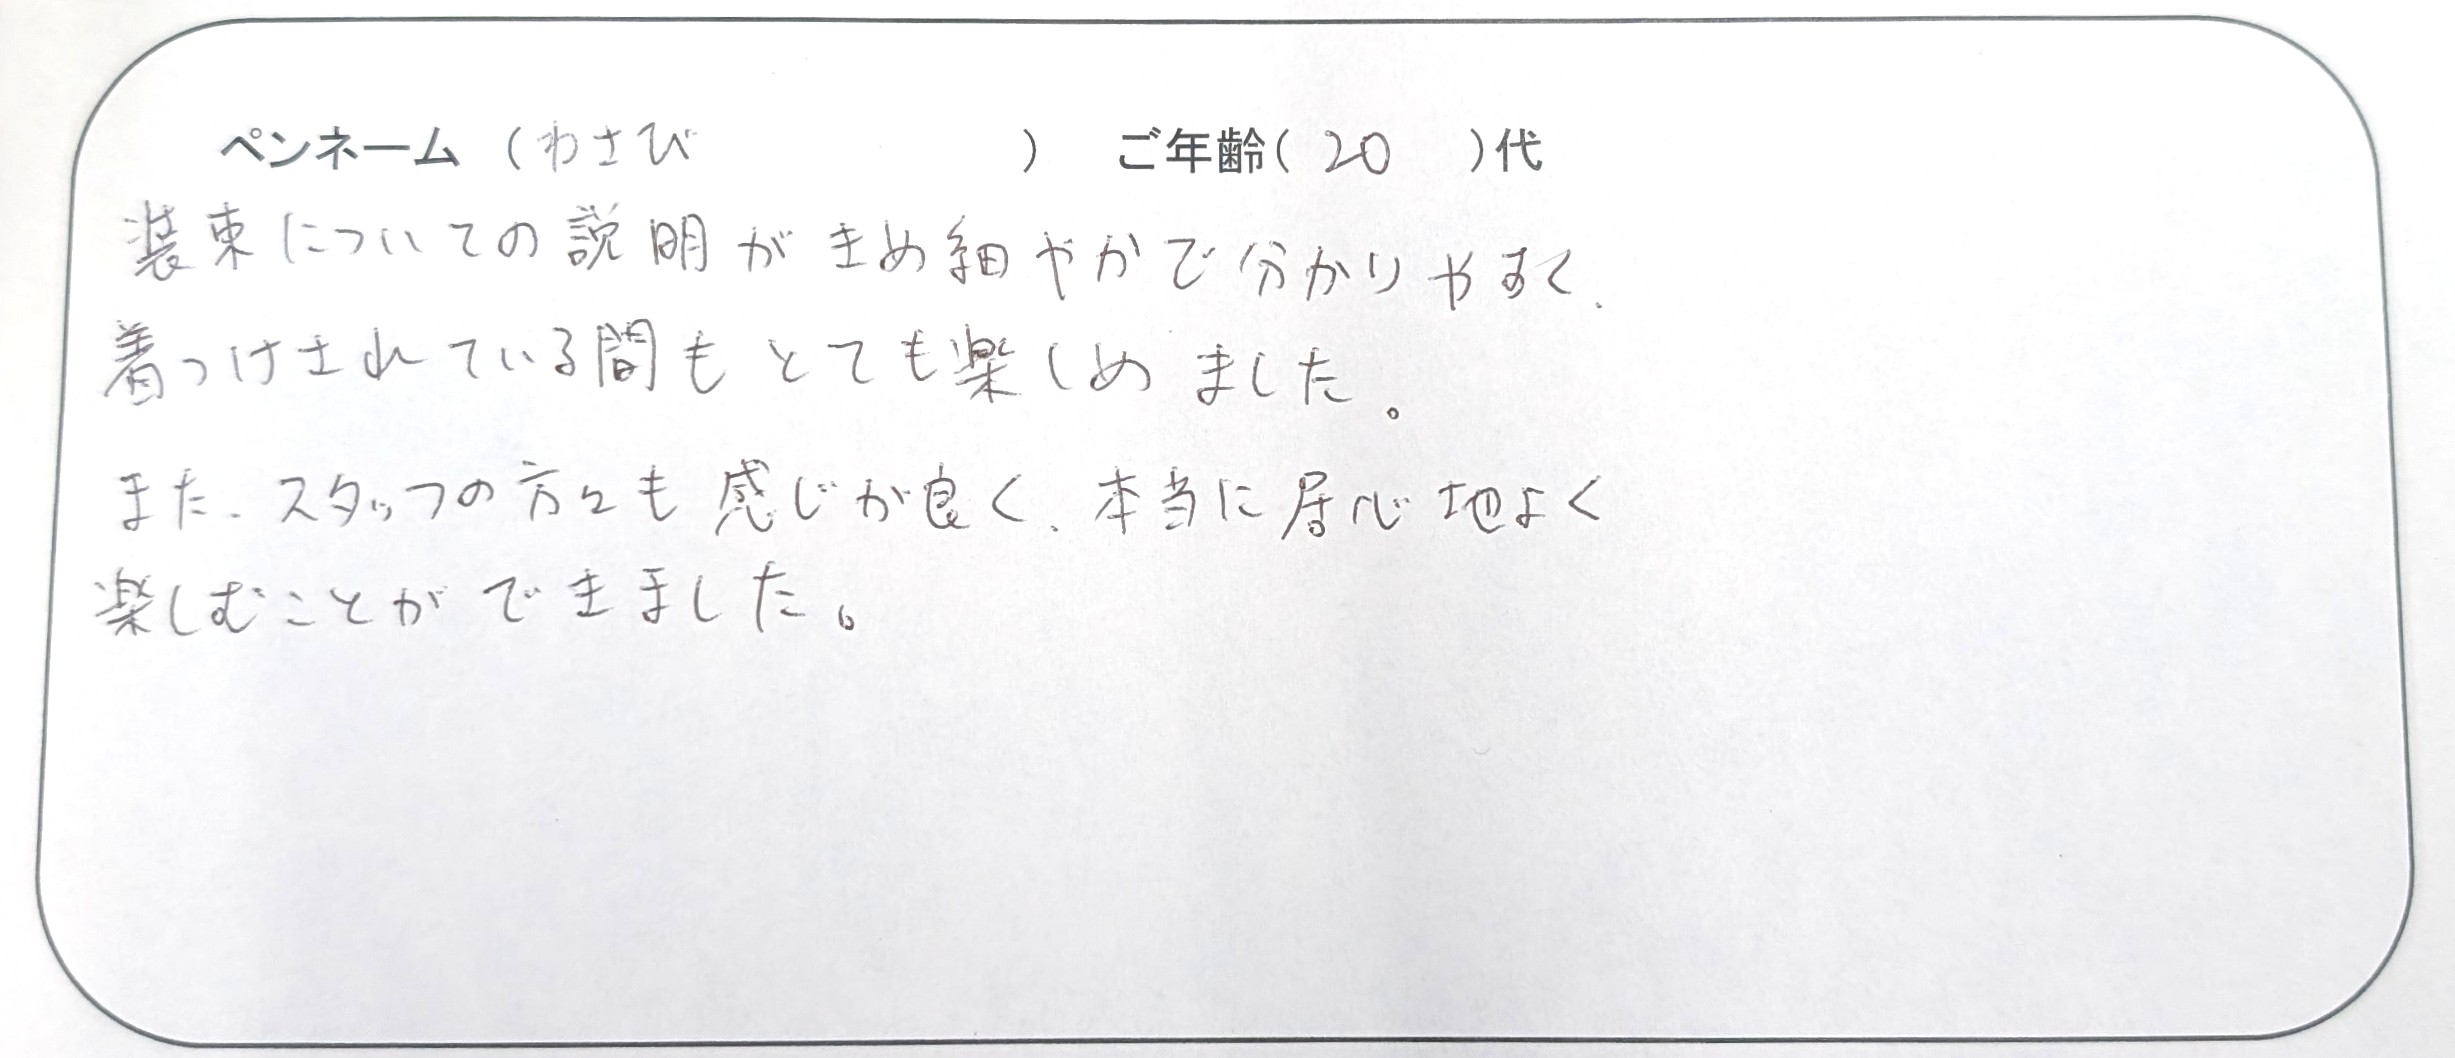 ペンネーム （わさび　　　　　　） ご年齢（ 20 ）代
装束についての説明がきめ細やかで分かりやすく、
着つけされている間もとても楽しめました。
また、スタッフの方々も感じが良く、本当に居心地よく
楽しむことができました。